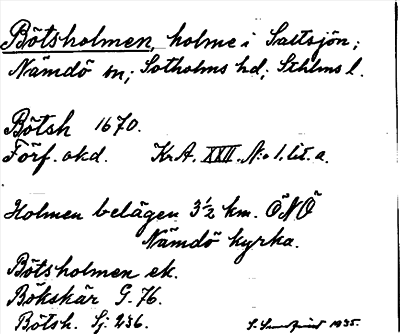 Bötsholmen, holme i Saltsjön;
Nämdö sn; Sotholms hd; Sthlms l.
Bötsh 1670.
Förf. okd. Kr.A. XXII. N:o 1. lit. a.
Holmen belägen 3½ km. ÖNÖ
Nämdö kyrka.
Bötsholmen ek.
Bökskär G. 76.
Bötsh. Sj. 236. 1935.